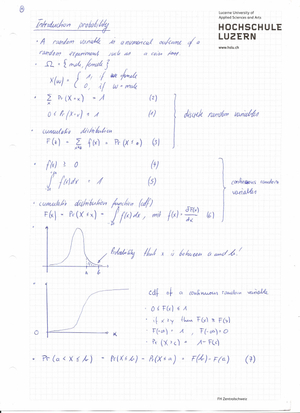 8
Lucerne University of
Applied Sciences and Arts
HOCHSCHULE
LUZERN
www.hslu.ch
Introduction probability
• A random variable is a numerical outcome of a
random experiment such as a coin toss.
• Ω = { male, female }
X(ω) = { 1, if ω = female
0, if ω = male
• Σ Pr (X = x) = 1 (2)
0 ≤ Pr (X = x) ≤ 1
discrete random variables
• cumulative distribution
F(x) = Σ f(x) = Pr (X ≤ x) (3)
• f(x) ≥ 0 (4)
∫ f(x) dx = 1 (5)
continuous random
variables
• cumulative distribution function (cdf)
F(x) = Pr (X ≤ x) = ∫ f(x) dx, f(x) = ∂F(x)/∂x (6)
Probability that x is between a and b!
a b
cdf of a continuous random variable
• 0 ≤ F(x) ≤ 1
• if x < y then F(x) ≤ F(y)
• F(-∞) = 0
• Pr (X > x) = 1 - F(x)
0
x
• Pr (a < X ≤ b) = Pr (X ≤ b) - Pr (X ≤ a) = F(b) - F(a) (7)
FH Zentralschweiz